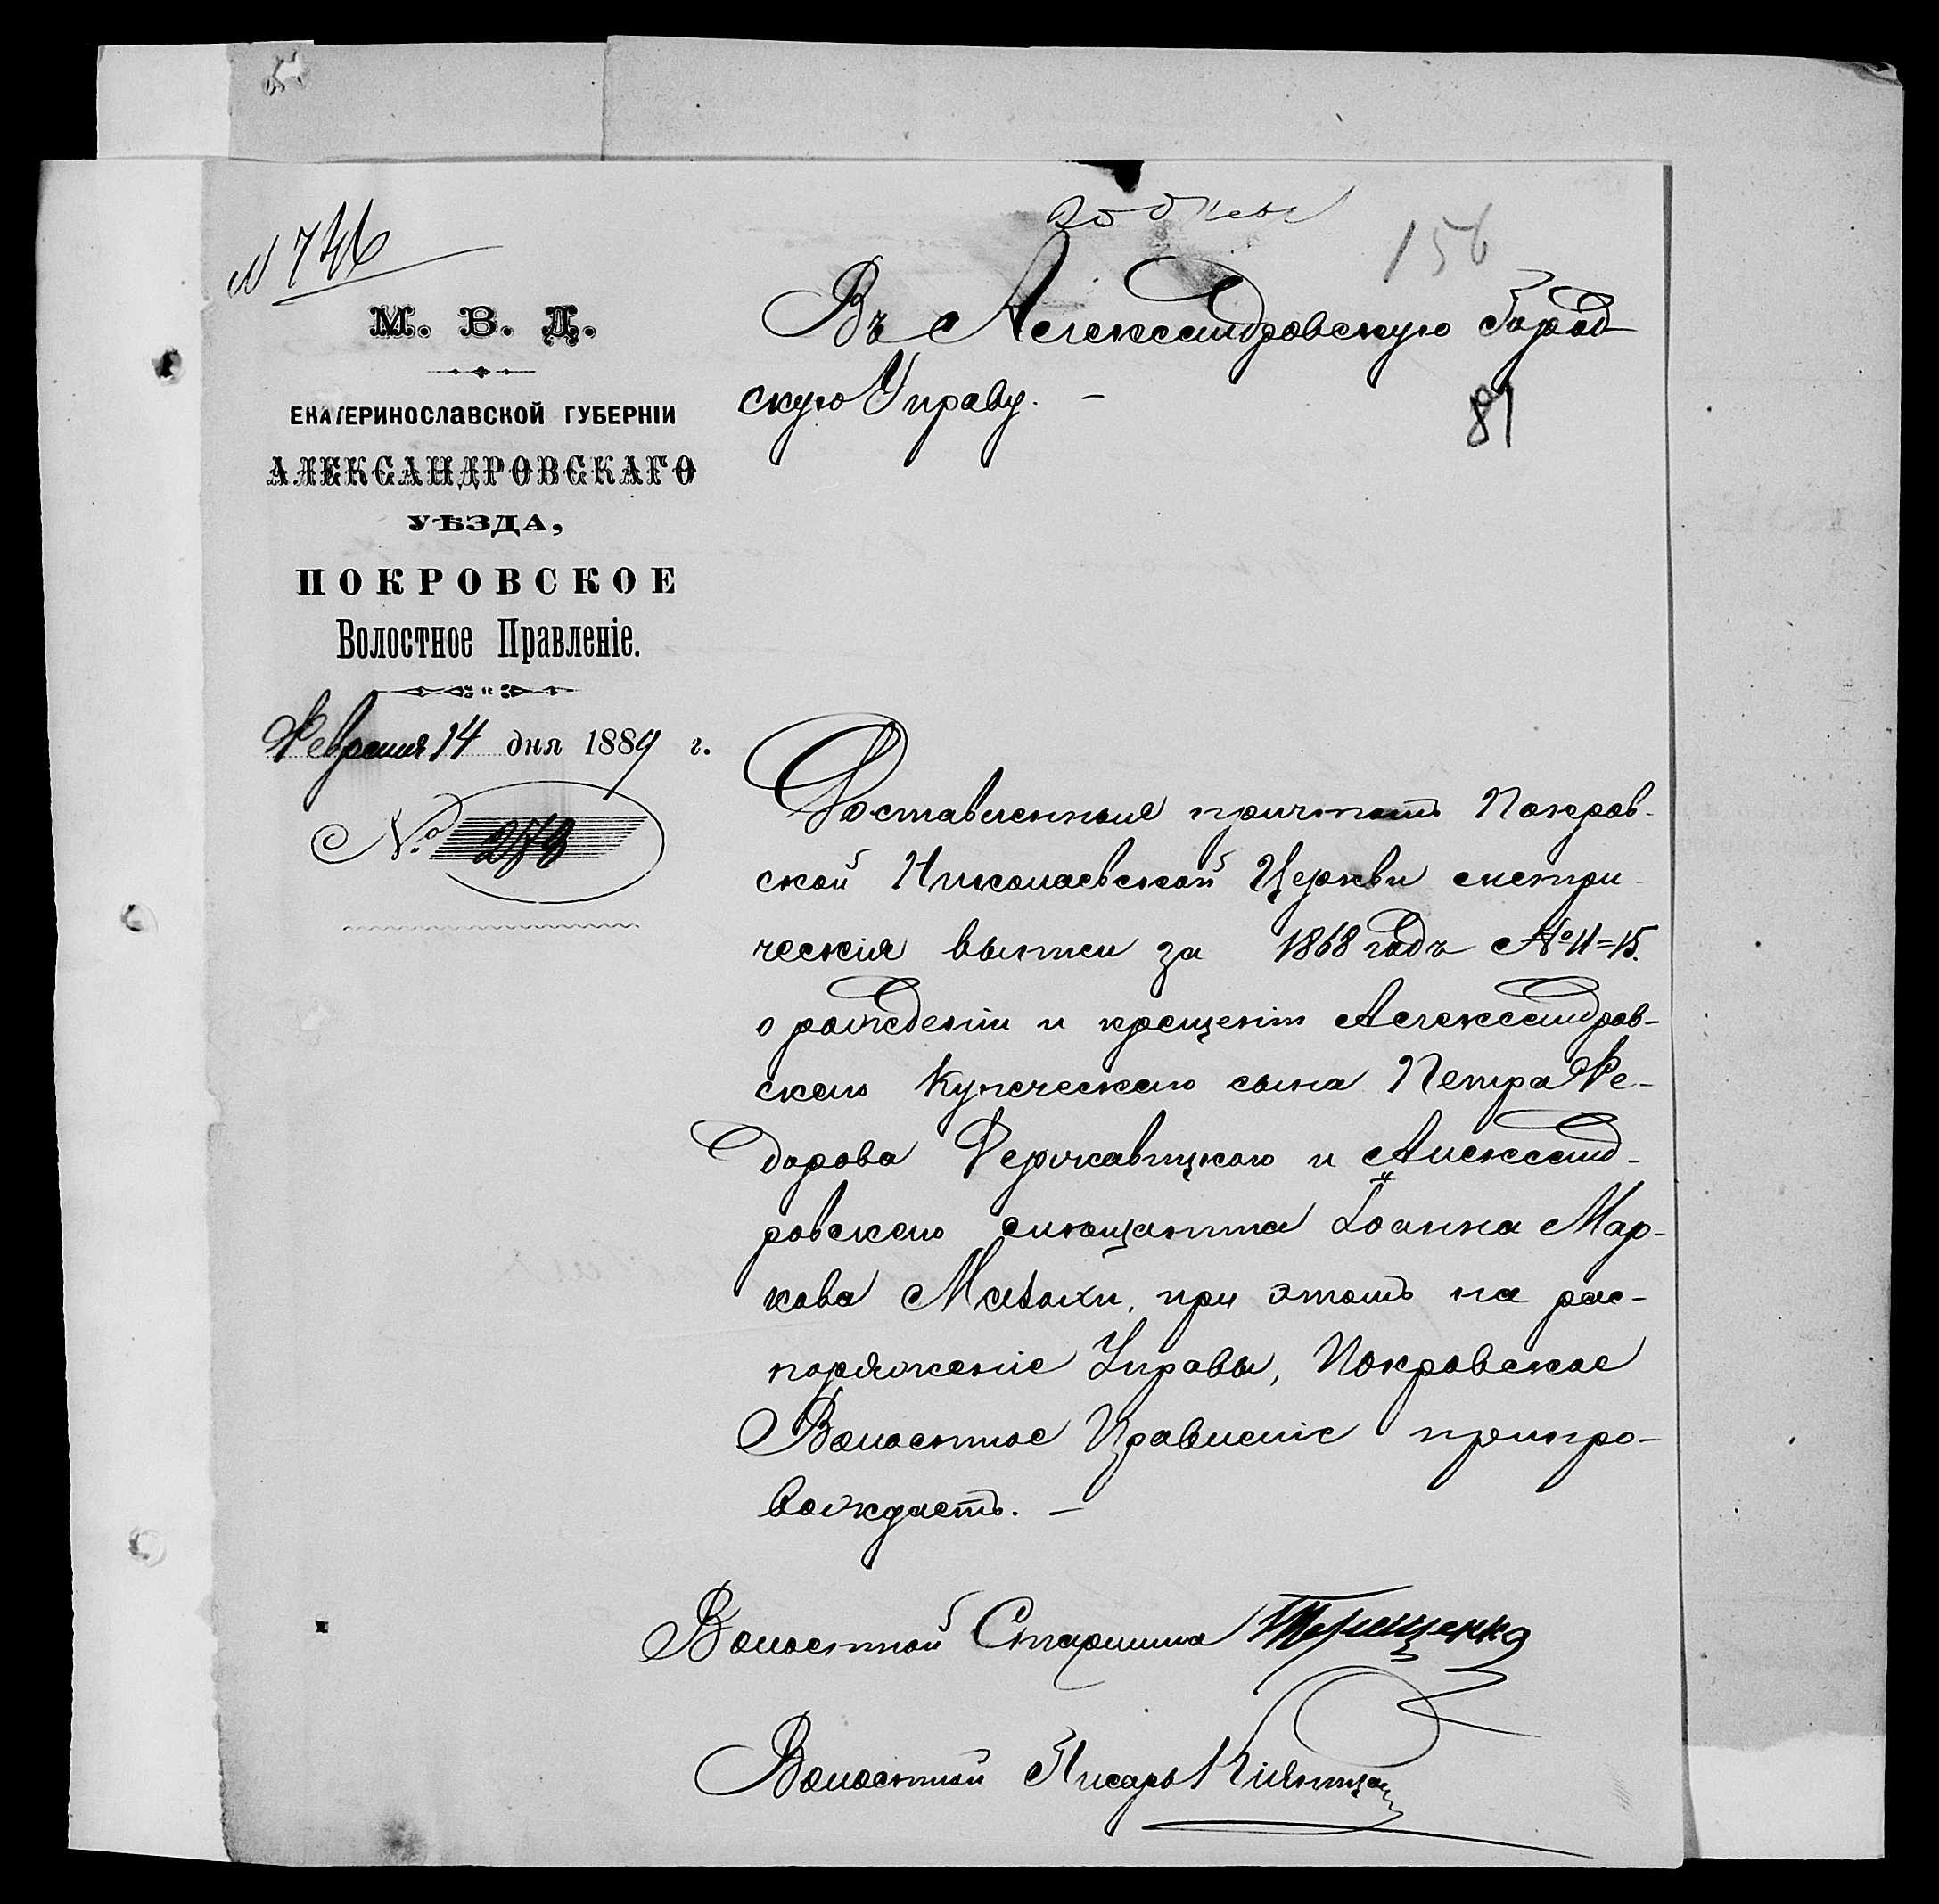 № 746
156
М. В. Д.
ЕКАТЕРИНОСЛАВСКОЙ ГУБЕРНІИ
АЛЕКСАНДРОВСКАГО
УѢЗДА,
ПОКРОВСКОЕ
Волостное Правленіе.
Февраля 14 дня 1889 г.
№
Въ Александровскую Город
скую Управу. —
81
Доставленныя причтомъ Покров-
ской Николаевской Церкви метри-
ческія выписи за 1868 годъ № 11=15.
о рожденіи и крещеніи Александров-
скаго Купеческаго сына Петра Ѳе-
дорова Державицкаго и Александ-
ровскаго мѣщанина Іоанна Мар-
кова при этомъ на рас-
поряженіе Управы, Покровское
Волостное Правленіе препро-
вождаетъ. —
Волостной Старшина Терещенко
Волостной Писарь